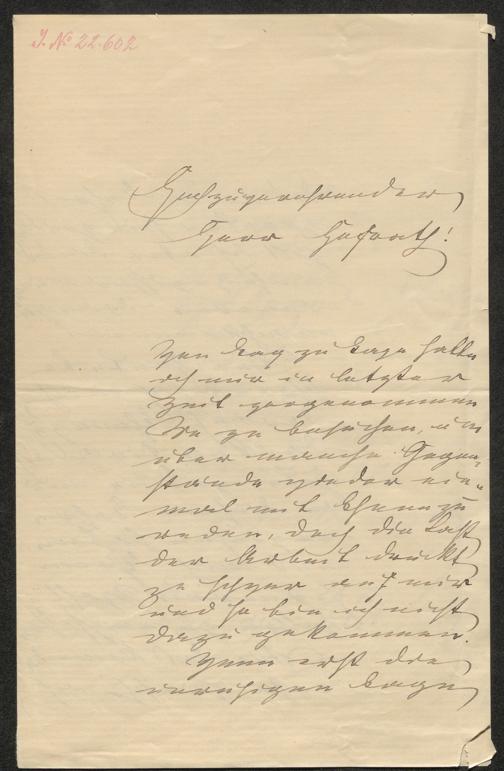 J. No 22.602
Hochzuverehrender
Herr Hofrath!
Von Tag zu Tage hatte
ich mir in letzter
Zeit vorgenommen
Sie zu besuchen, um
über manche Gegen-
stände wieder ein-
mal mit Ihnen zu
reden, doch die Last
der Arbeit drückt
zu schwer auf mir
und so bin ich nicht
dazu gekommen.
Wenn erst die
unruhigen Tage